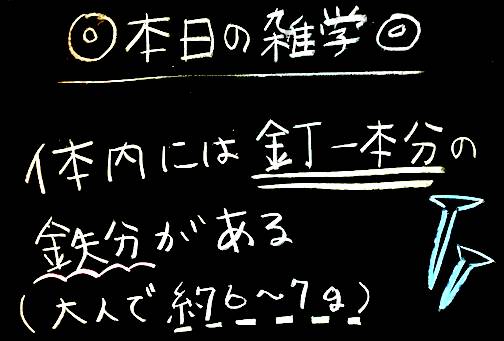 ◎本日の雑学◎
体内には釘一本分の
鉄分がある
(大人で約6〜7g)